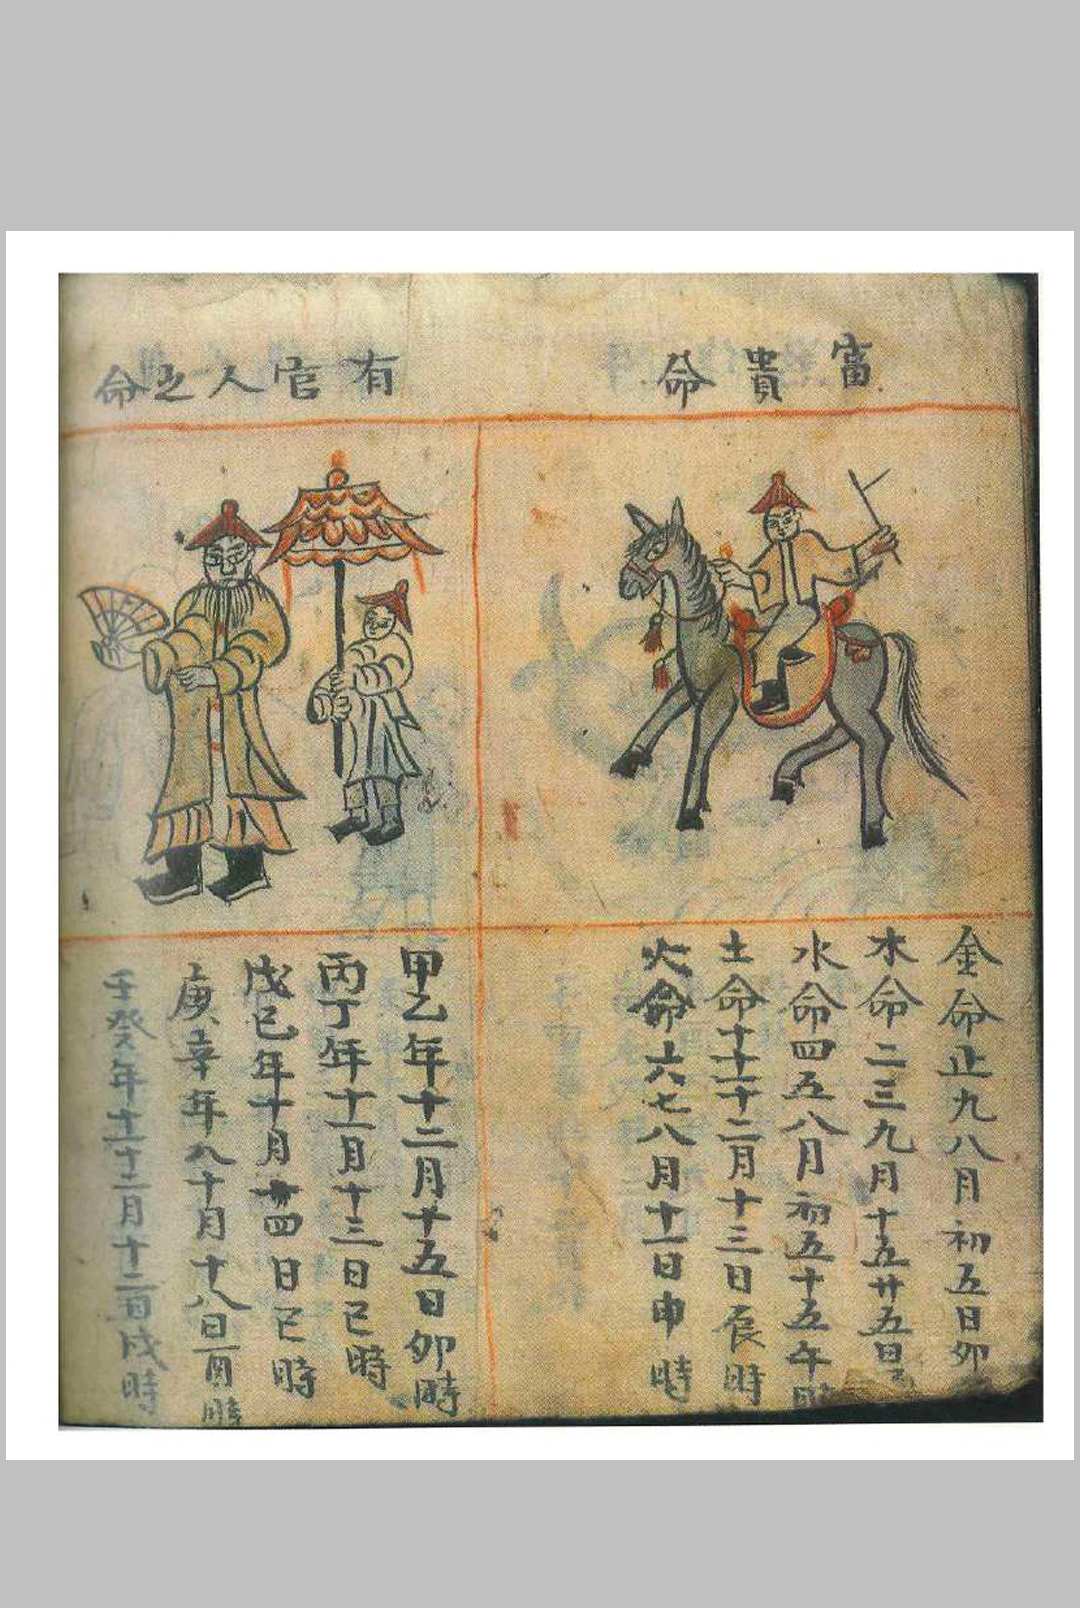 富貴命
金命正九八月初五日卯
木命二三九月十五廿五日
水命四五八月初五十五午時
土命十十一十二月十三日辰時
火命六七八月十一日申時
有官人之命
甲乙年十二月十五日卯時
丙丁年十一月十三日巳時
戊己年十月廿四日巳時
庚辛年八十月十八日酉時
壬癸年十一十二月十二日戌時